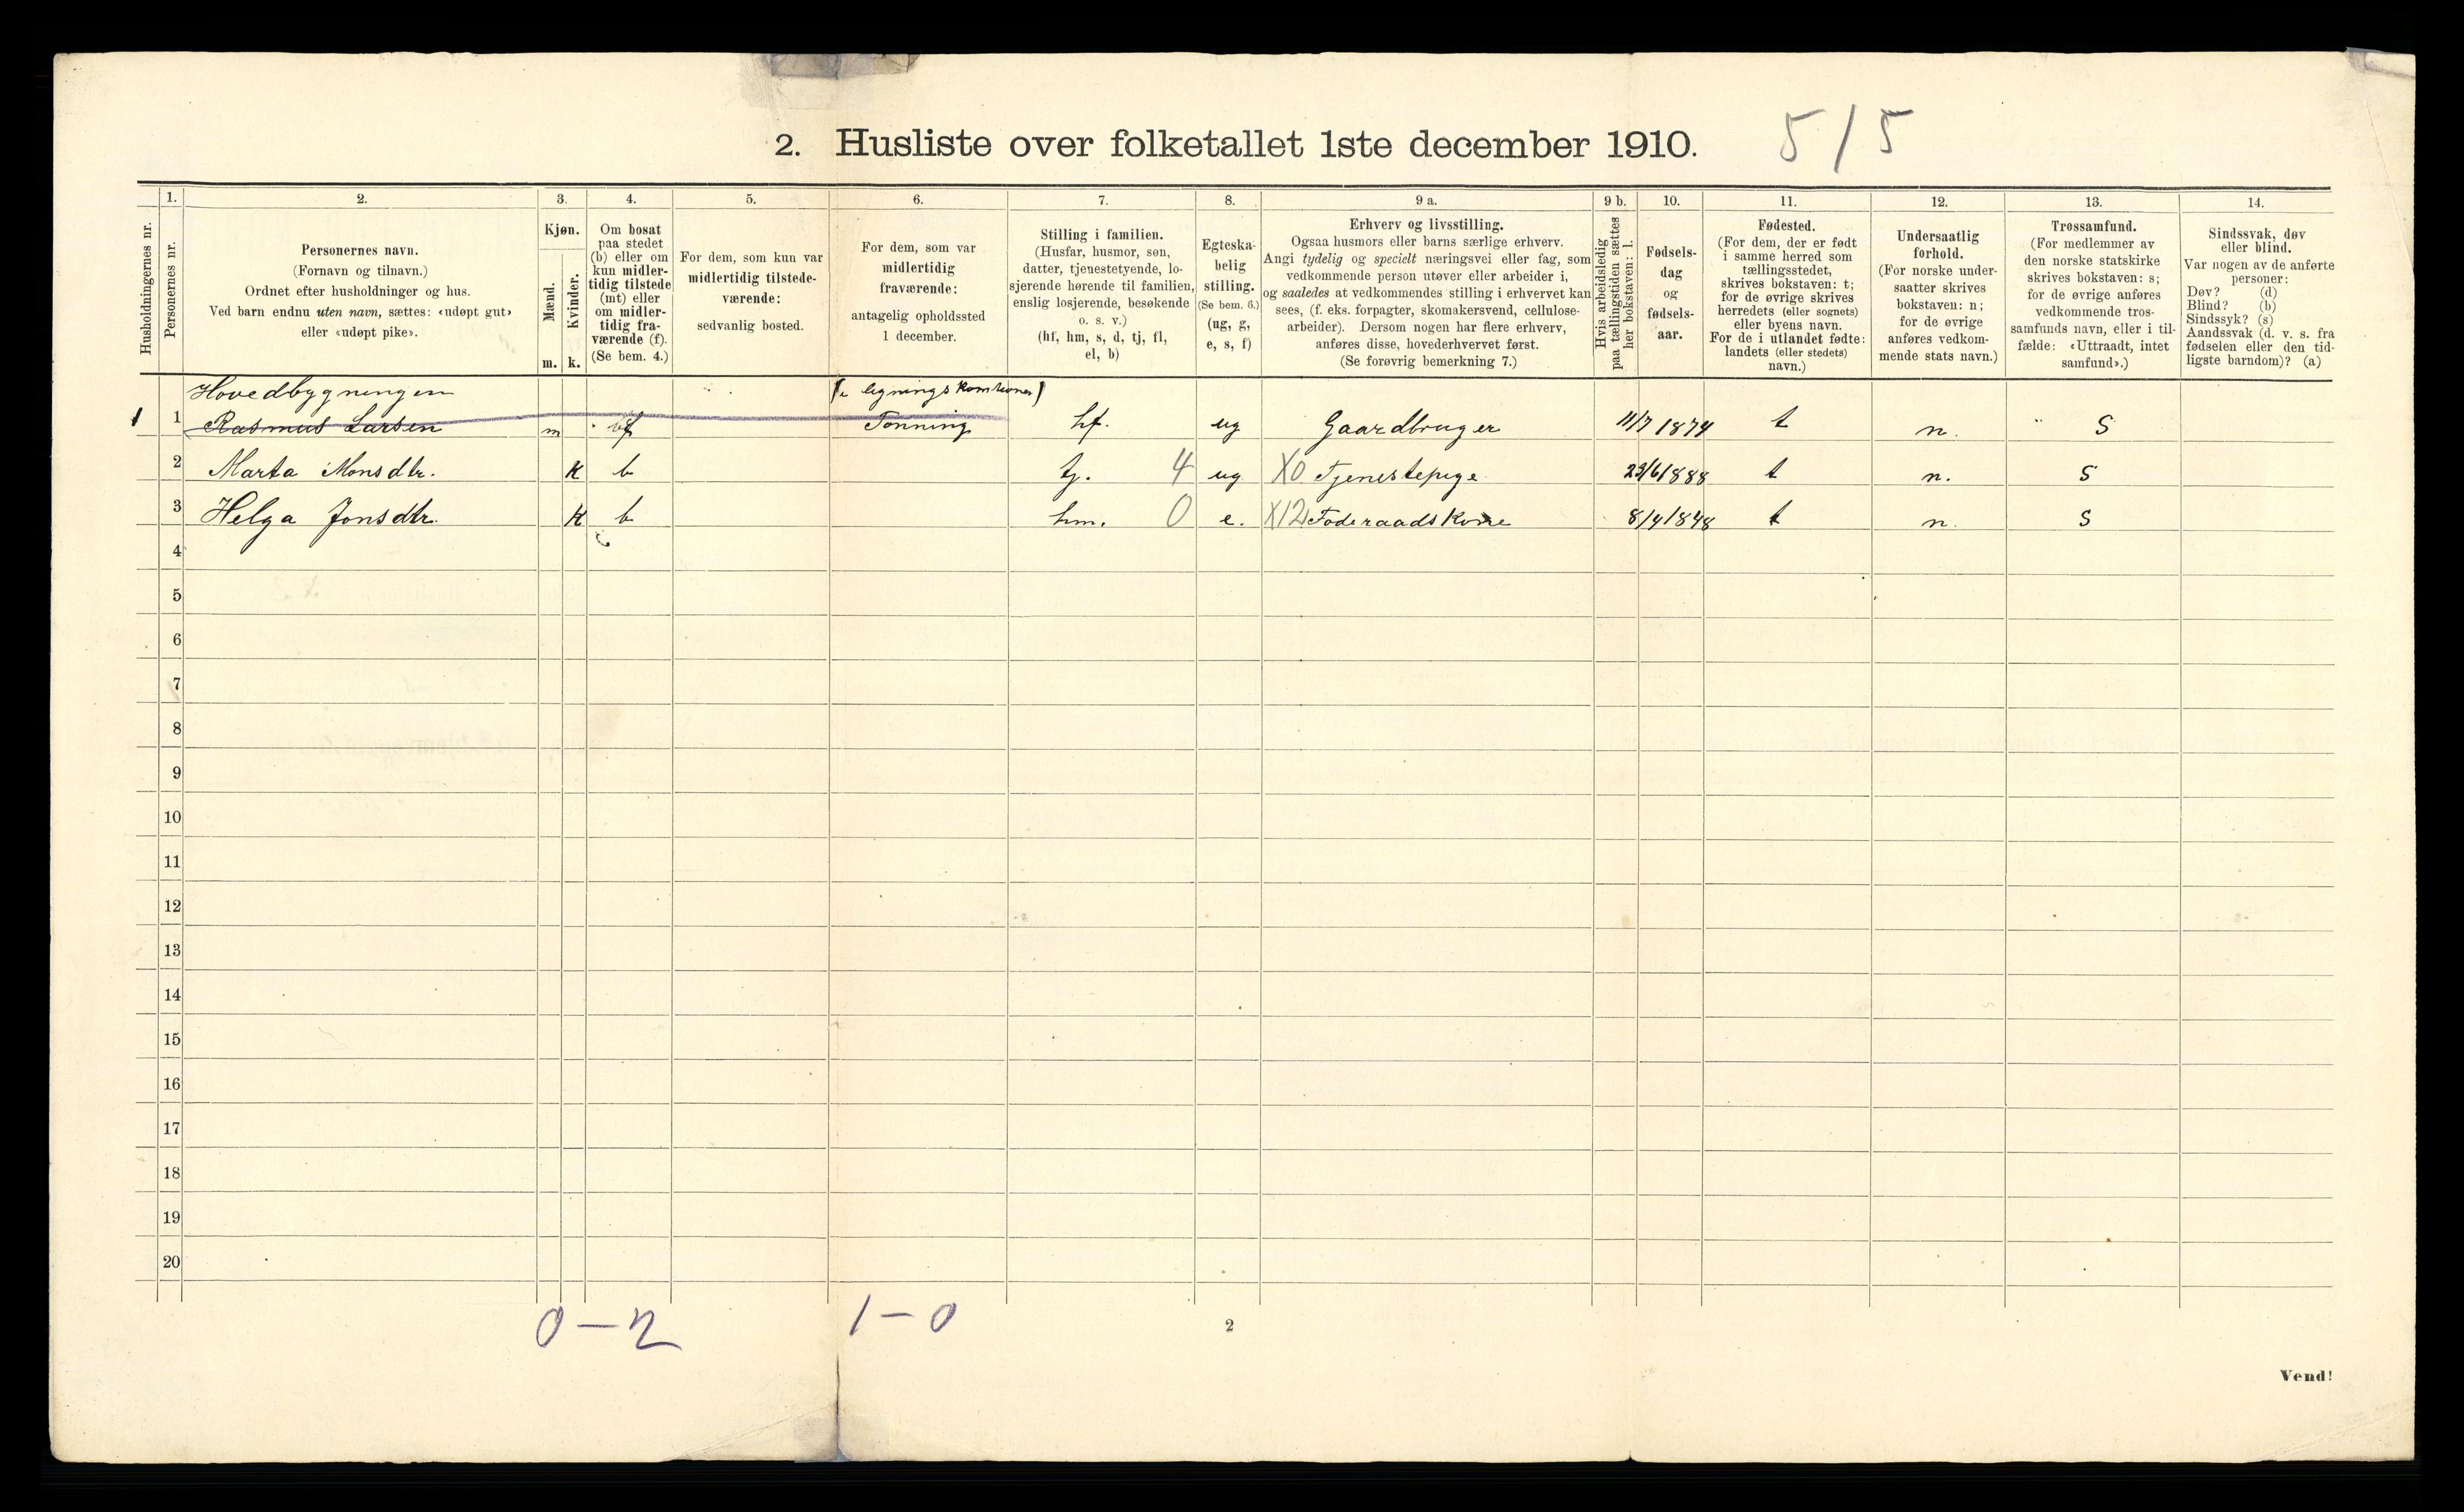 2. Husliste over folketallet 1ste december 1910. 5/5
Husholdningernes nr.
1.
Personernes nr.
2.
Personernes navn.
(Fornavn og tilnavn.)
Ordnet efter husholdninger og hus.
Ved barn endnu uten navn, sættes: «udøpt gut»
eller «udøpt pike».
3.
Kjøn.
Mænd.
m.
Kvinder.
k.
4.
Om bosat
paa stedet
(b) eller om
kun midler-
tidig tilstede
(mt) eller
om midler-
tidig fra-
værende (f).
(Se bem. 4.)
5.
For dem, som kun var
midlertidig tilstede-
værende:
sedvanlig bosted.
6.
For dem, som var
midlertidig
fraværende:
antagelig opholdssted
1 december.
7.
Stilling i familien.
(Husfar, husmor, søn,
datter, tjenestetyende, lo-
sjerende hørende til familien,
enslig losjerende, besøkende
o. s. v.)
(hf, hm, s, d, tj, fl,
el, b)
8.
Egteska-
belig
stilling.
(Se bem. 6.)
(ug, g,
e, s, f)
9 a.
Erhverv og livsstilling.
Ogsaa husmors eller barns særlige erhverv.
Angi tydelig og specielt næringsvei eller fag, som
vedkommende person utøver eller arbeider i,
og saaledes at vedkommendes stilling i erhvervet kan
sees, (f. eks. forpagter, skomakersvend, cellulose-
arbeider). Dersom nogen har flere erhverv,
anføres disse, hovederhvervet først.
(Se forøvrig bemerkning 7.)
9 b.
Hvis arbeidsledig
paa tællingstiden sættes
her bokstaven: l.
10.
Fødsels-
dag
og
fødsels-
aar.
11.
Fødested.
(For dem, der er født
i samme herred som
tællingsstedet,
skrives bokstaven: t;
for de øvrige skrives
herredets (eller sognets)
eller byens navn.
For de i utlandet fødte:
landets (eller stedets)
navn.)
12.
Undersaatlig
forhold.
(For norske under-
saatter skrives
bokstaven: n;
for de øvrige
anføres vedkom-
mende stats navn.)
13.
Trossamfund.
(For medlemmer av
den norske statskirke
skrives bokstaven: s;
for de øvrige anføres
vedkommende tros-
samfunds navn, eller i til-
fælde: «Uttraadt, intet
samfund».)
14.
Sindssvak, døv
eller blind.
Var nogen av de anførte
personer:
Døv? (d)
Blind? (b)
Sindssyk? (s)
Aandssvak (d. v. s. fra
fødselen eller den tid-
ligste barndom)? (a)
Hovedbygningen
1 1 Rasmus Larsen m f Tønning hf. ug Gaardbruger 11/7 1874 t n. S
2 Marta Monsdtr. K b tj. 4 ug X0 Tjenestepige 23/6 1888 t n. S
3 Helga Jonsdtr. K b hm. 0 e. X12 Føderaadskone 8/4 1848 t n. S
4
5
6
7
8
9
10
11
12
13
14
15
16
17
18
19
20
0 – 2 1 – 0
2
Vend!